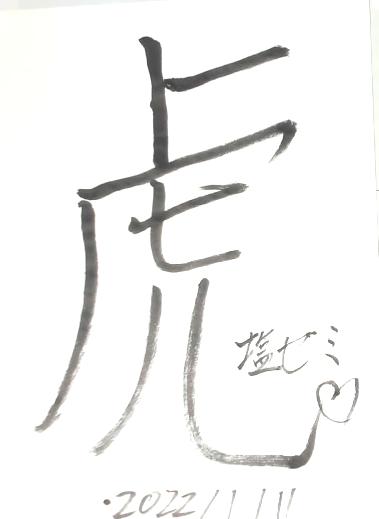 虎
塩ゼミ
・2022/1/11